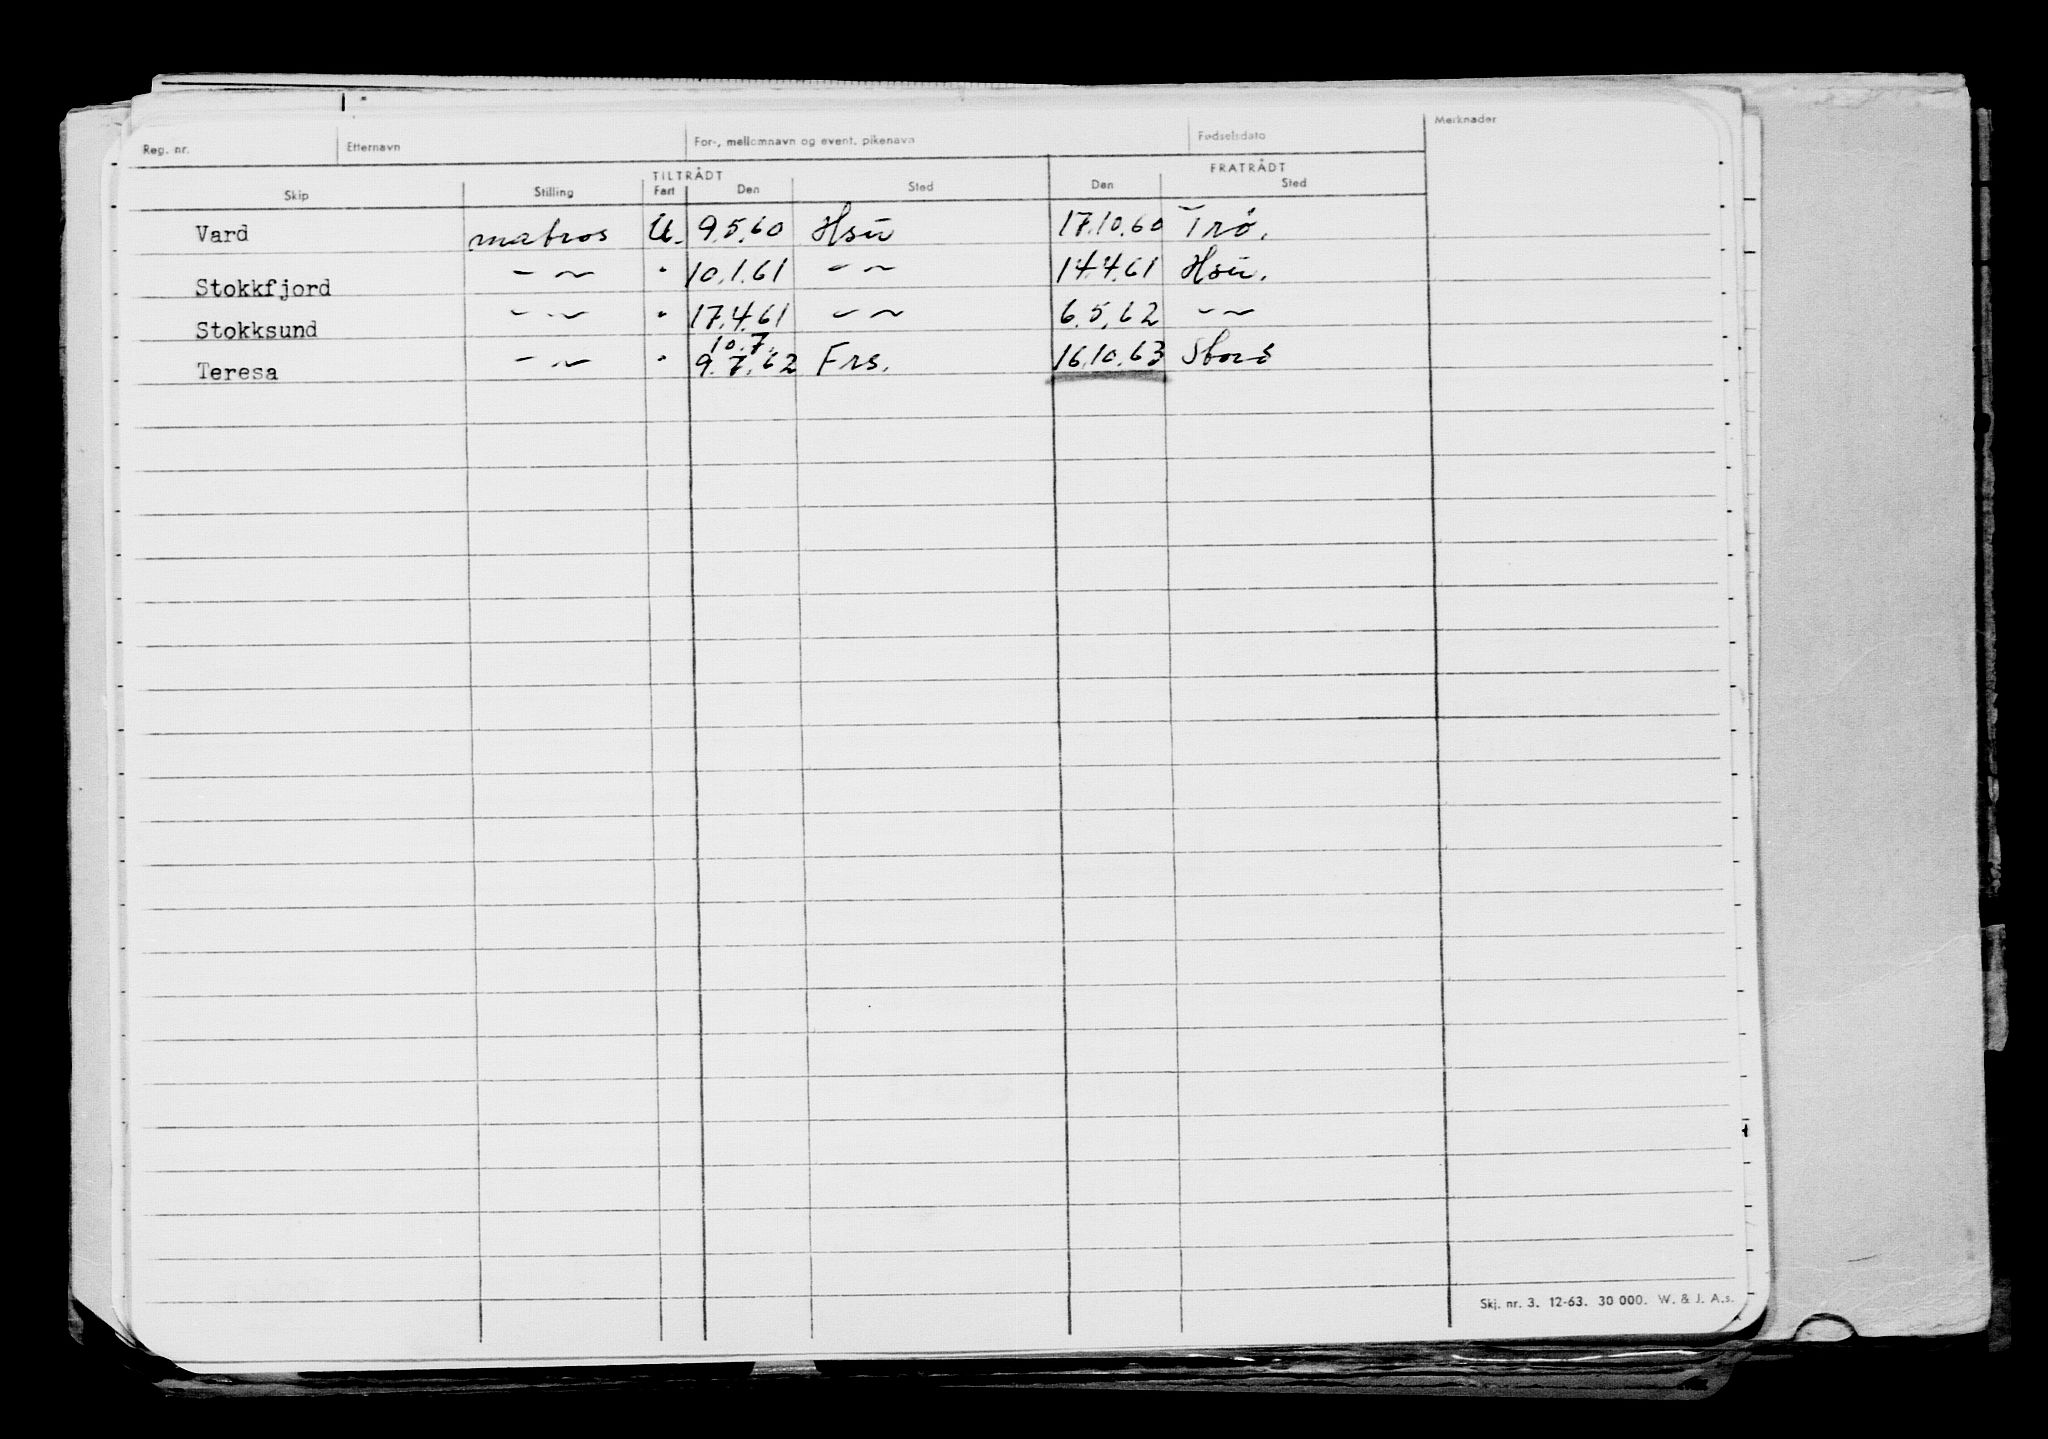 Reg. nr. Etternavn For-, mellomnavn og event. pikenavn Fødselsdato Merknader
TILTRÅDT FRATRÅDT
Skip Stilling Fart Den Sted Den Sted
Vard matros U. 9.5.60 Hsu 17.10.60 Trø.
Stokkfjord - ~ " 10.1.61 - ~ 14.4.61 Hsu.
Stokksund - ~ " 17.4.61 - ~ 6.5.62 - ~
10.7.
Teresa - ~ " 9.7.62 Frs. 16.10.63
Skj. nr. 3. 12-63. 30 000. W. & J. A.s.